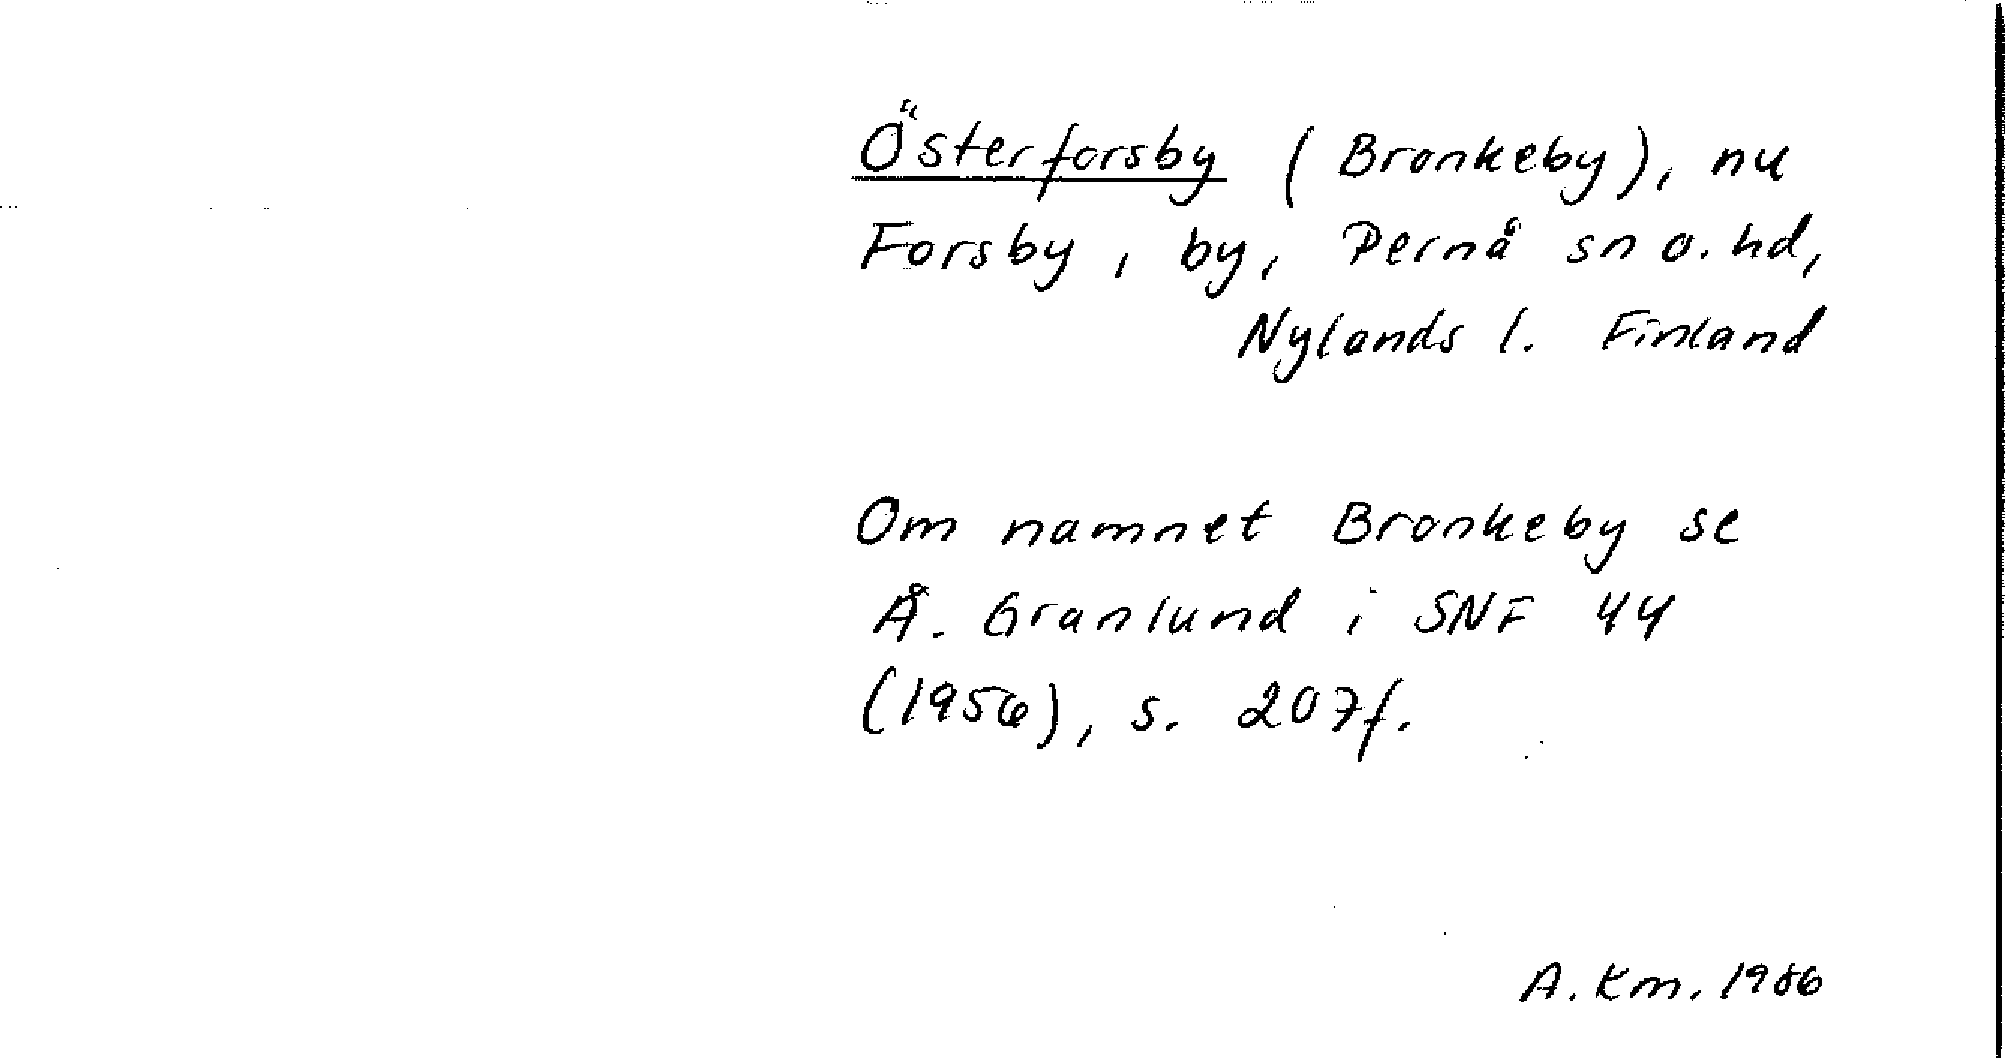 Österforsby (Bronkeby), nu
Forsby, by, Pernå sn o. hd,
Nylands l. Finland
Om namnet Bronkeby se
Å. Granlund i SNF 44
(1956), s. 207f.
A. Km. 1986